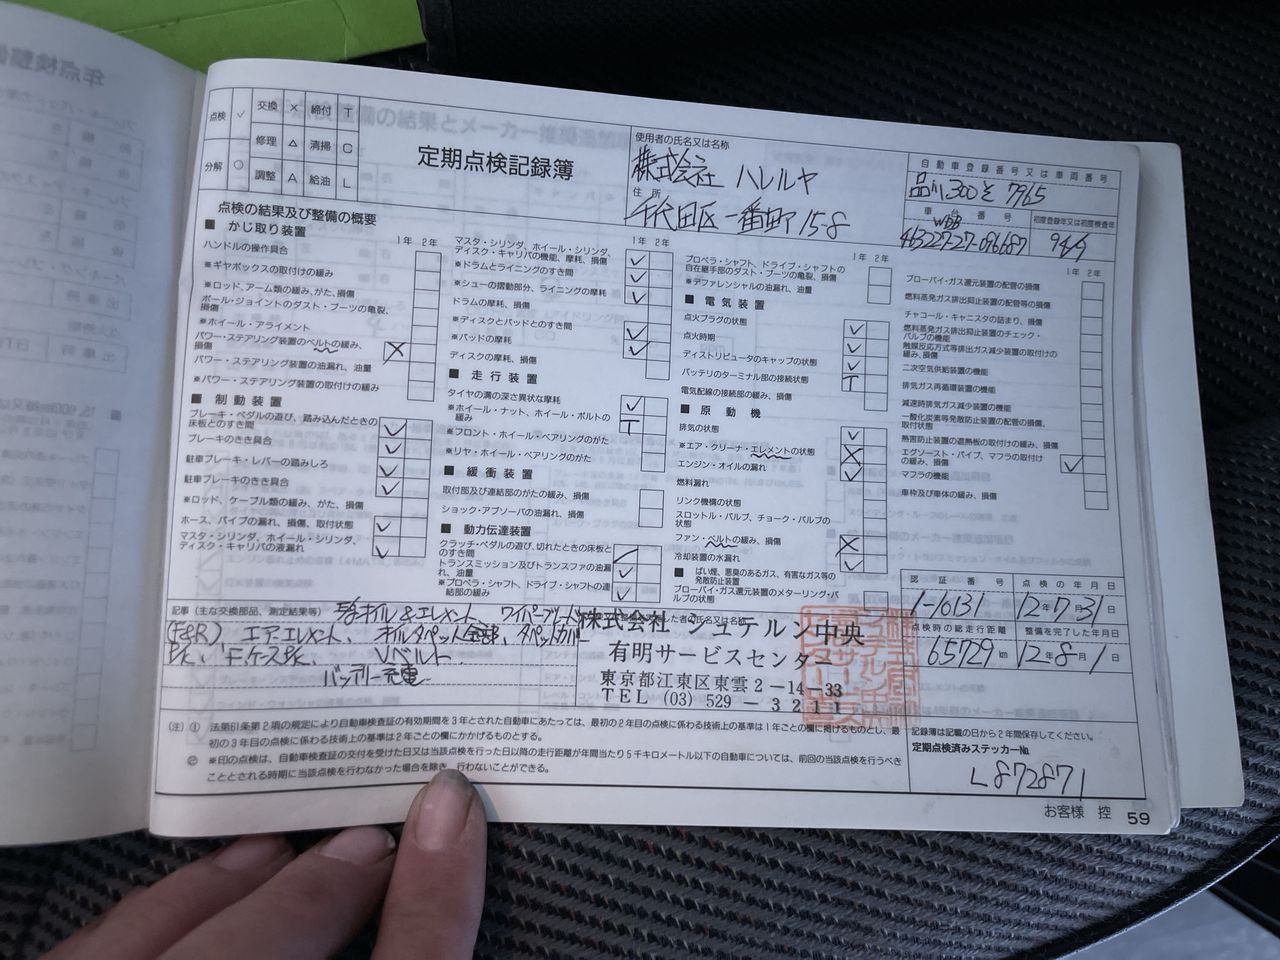 点検 ✓ 交換 × 締付 T
修理 △ 清掃 C
分解 ○ 調整 A 給油 L
定期点検記録簿
使用者の氏名又は名称
株式会社 ハレルヤ
住所
千代田区一番町15-8
自動車登録番号又は車両番号
品川300そ7965
車台番号
WDB
463227-27-096687
初度登録年又は初度検査年
94.9
点検の結果及び整備の概要
■ かじ取り装置
1年 2年
ハンドルの操作具合
※ギヤボックスの取付けの緩み
※ロッド、アーム類の緩み、がた、損傷
ボール・ジョイントのダスト・ブーツの亀裂、損傷
※ホイール・アライメント
パワー・ステアリング装置のベルトの緩み、損傷 ×
パワー・ステアリング装置の油漏れ、油量
※パワー・ステアリング装置の取付けの緩み
■ 制動装置
ブレーキ・ペダルの遊び、踏み込んだときの床板とのすき間 ✓
ブレーキのきき具合 ✓
駐車ブレーキ・レバーの踏みしろ ✓
駐車ブレーキのきき具合 ✓
※ロッド、ケーブル類の緩み、がた、損傷
ホース、パイプの漏れ、損傷、取付状態 ✓
マスタ・シリンダ、ホイール・シリンダ、ディスク・キャリパの液漏れ ✓
1年 2年
マスタ・シリンダ、ホイール・シリンダ、ディスク・キャリパの機能、摩耗、損傷 ✓
※ドラムとライニングのすき間 ✓
※シューの摺動部分、ライニングの摩耗 ✓
ドラムの摩耗、損傷
※ディスクとパッドとのすき間 ✓
※パッドの摩耗 ✓
ディスクの摩耗、損傷
■ 走行装置
タイヤの溝の深さ異状な摩耗 ✓
※ホイール・ナット、ホイール・ボルトの緩み T
※フロント・ホイール・ベアリングのがた
※リヤ・ホイール・ベアリングのがた
■ 緩衝装置
取付部及び連結部のがたの緩み、損傷
ショック・アブソーバの油漏れ、損傷
■ 動力伝達装置
クラッチ・ペダルの遊び、切れたときの床板とのすき間
トランスミッション及びトランスファの油漏れ、油量 ✓
※プロペラ・シャフト、ドライブ・シャフトの連結部の緩み ✓
1年 2年
プロペラ・シャフト、ドライブ・シャフトの自在継手部のダスト・ブーツの亀裂、損傷
※デファレンシャルの油漏れ、油量
■ 電気装置
点火プラグの状態 ✓
点火時期 ✓
ディストリビュータのキャップの状態 ✓
バッテリのターミナル部の接続状態 T
電気配線の接続部の緩み、損傷
■ 原動機
排気の状態 ✓
※エア・クリーナ・エレメントの状態 ×
エンジン・オイルの漏れ ✓
燃料漏れ
リンク機構の状態
スロットル・バルブ、チョーク・バルブの状態
ファン・ベルトの緩み、損傷 ×
冷却装置の水漏れ ✓
■ ばい煙、悪臭のあるガス、有害なガス等の発散防止装置
ブローバイ・ガス還元装置のメターリング・バルブの状態
1年 2年
ブローバイ・ガス還元装置の配管の損傷
燃料蒸発ガス排出抑止装置の配管等の損傷
チャコール・キャニスタの詰まり、損傷
燃料蒸発ガス排出抑止装置のチェック・バルブの機能
触媒反応方式等排出ガス減少装置の取付けの緩み、損傷
二次空気供給装置の機能
排気ガス再循環装置の機能
減速時排気ガス減少装置の機能
一酸化炭素等発散防止装置の配管の損傷、取付状態
熱害防止装置の遮熱板の取付けの緩み、損傷
エグゾースト・パイプ、マフラの取付けの緩み、損傷 ✓
マフラの機能
車枠及び車体の緩み、損傷
記事 (主な交換部品、測定結果等)
オイル&エレメント、ワイパーブレード
(F&R) エアエレメント、オイルタペット全部、タペットカバー
Pk、F.ケースPk、Vベルト
バッテリー充電
株式会社 シュテルン中央
有明サービスセンター
東京都江東区東雲2-14-33
TEL (03) 529-3211
認証番号
1-10131
点検の年月日
12年7月31日
点検時の総走行距離
65729 km
整備を完了した年月日
12年8月1日
(注) ① 法第61条第2項の規定により自動車検査証の有効期間を3年とされた自動車にあたっては、最初の2年目の点検に係わる技術上の基準は1年ごとの欄に掲げるものとし、最
初の3年目の点検に係わる技術上の基準は2年ごとの欄にかかげるものとする。
② ※印の点検は、自動車検査証の交付を受けた日又は当該点検を行った日以降の走行距離が年間当たり5千キロメートル以下の自動車については、前回の当該点検を行うべき
こととされる時期に当該点検を行わなかった場合を除き、行わないことができる。
記録簿は記載の日から2年間保存してください。
定期点検済みステッカー№
L872871
お客様 控 59